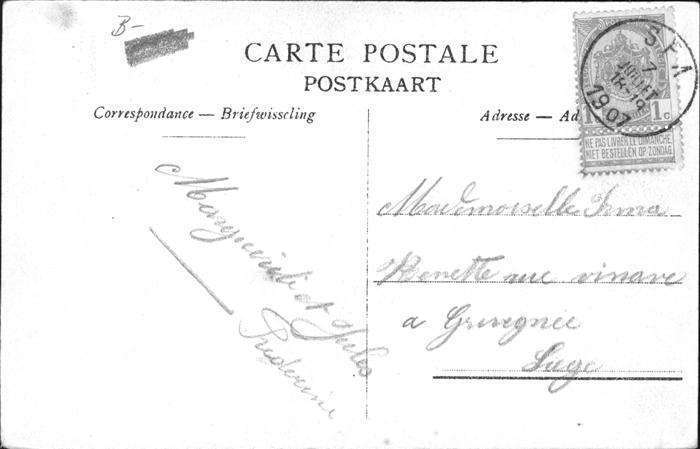 B-
CARTE POSTALE
POSTKAART
Correspondance — Briefwisseling
Adresse — Ad
SPA
7
JUILLET
18-19
1907
1c
NE PAS LIVRER LE DIMANCHE
NIET BESTELLEN OP ZONDAG
Marguerite et Jules
Mademoiselle Irma
Renette rue vinave
a Grivegnée
Liege